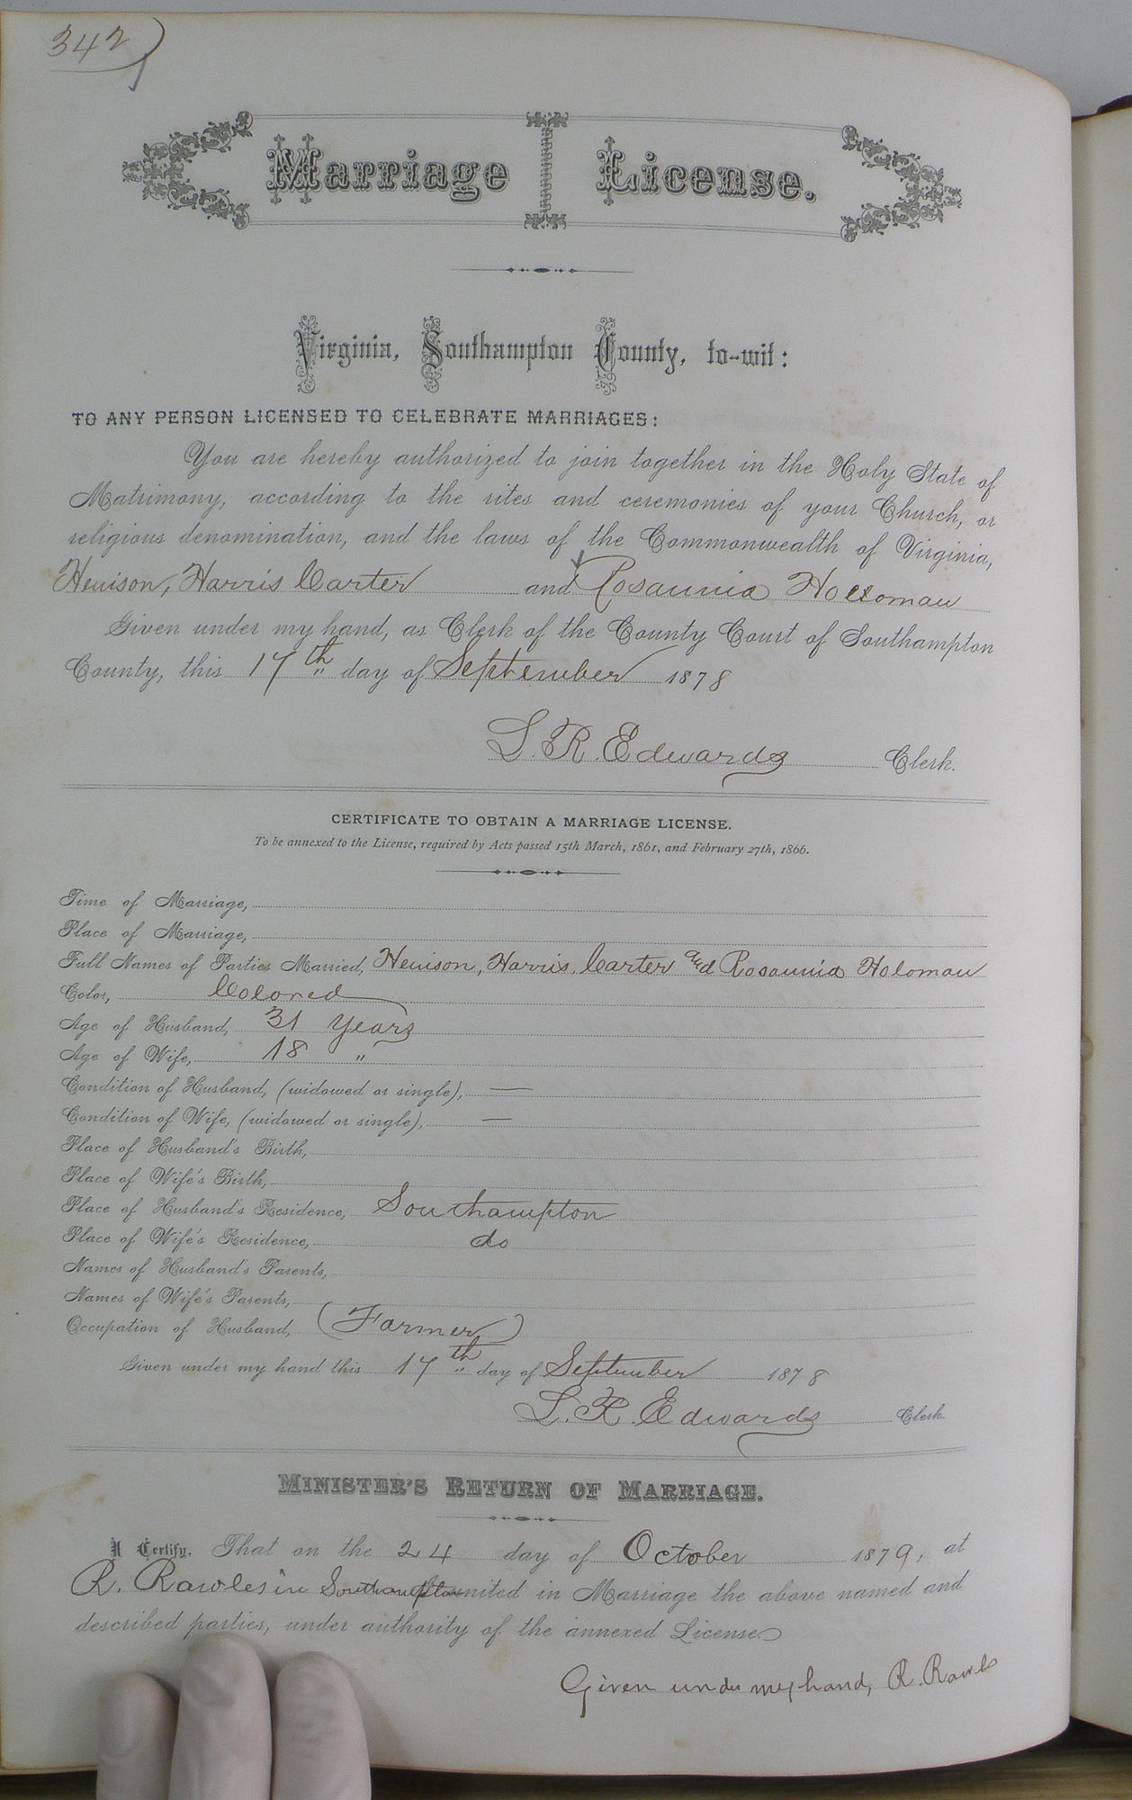 342)
Marriage License.
Virginia, Southampton County, to-wit:
TO ANY PERSON LICENSED TO CELEBRATE MARRIAGES:
You are hereby authorized to join together in the Holy State of
Matrimony, according to the rites and ceremonies of your Church, or
religious denomination, and the laws of the Commonwealth of Virginia,
Henison, Harris Carter and Rosaunia Holloman
Given under my hand, as Clerk of the County Court of Southampton
County, this 17th day of September 1878
L. R. Edwards Clerk.
CERTIFICATE TO OBTAIN A MARRIAGE LICENSE.
To be annexed to the License, required by Acts passed 15th March, 1861, and February 27th, 1866.
Time of Marriage,
Place of Marriage,
Full Names of Parties Married, Henison, Harris, Carter and Rosaunia Holoman
Color, Colored
Age of Husband, 31 Years
Age of Wife, 18 "
Condition of Husband, (widowed or single), —
Condition of Wife, (widowed or single), —
Place of Husband's Birth,
Place of Wife's Birth,
Place of Husband's Residence, Southampton
Place of Wife's Residence, do
Names of Husband's Parents,
Names of Wife's Parents,
Occupation of Husband, (Farmer)
Given under my hand this 17th day of September 1878
L. R. Edwards Clerk.
MINISTER'S RETURN OF MARRIAGE.
I Certify, That on the 24 day of October 1879, at
R. Rawles in Southampton united in Marriage the above named and
described parties, under authority of the annexed License.
Given under my hand, R. Rawls